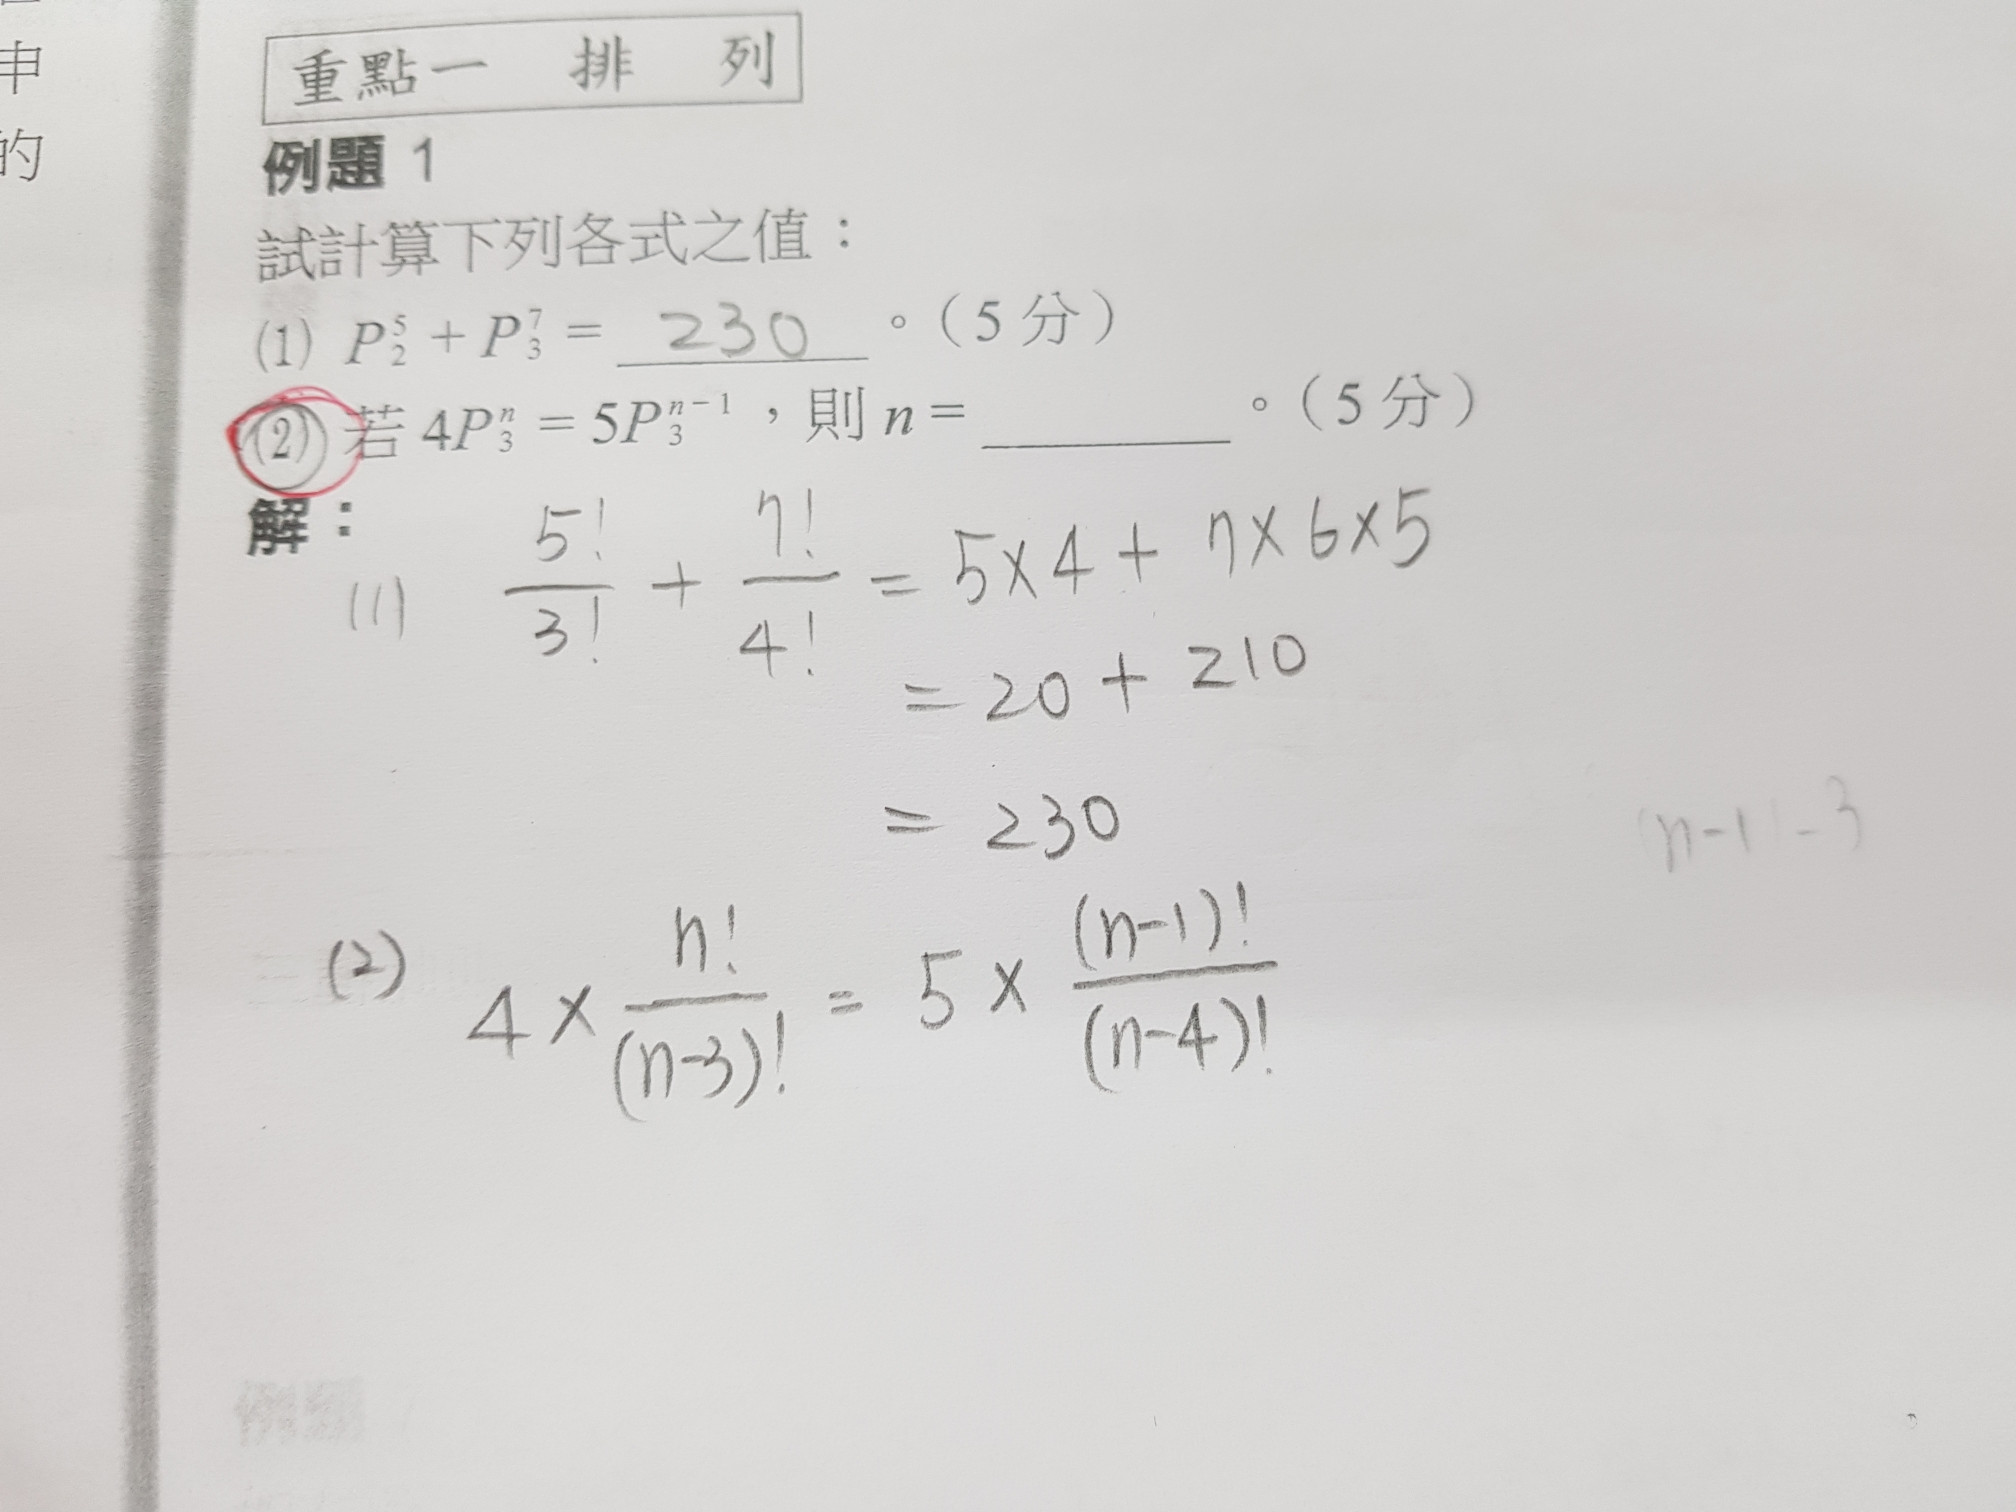 申
的
重點一 排 列
例題 1
試計算下列各式之值：
(1) P₂⁵ + P₃⁷ = 230 。（5 分）
(2) 若 4P₃ⁿ = 5P₃ⁿ⁻¹，則 n = ________ 。（5 分）
解：
(1) 5!/3! + 7!/4! = 5×4 + 7×6×5
= 20 + 210
= 230
(n-1)-3
(2) 4 × n!/(n-3)! = 5 × (n-1)!/(n-4)!
例題